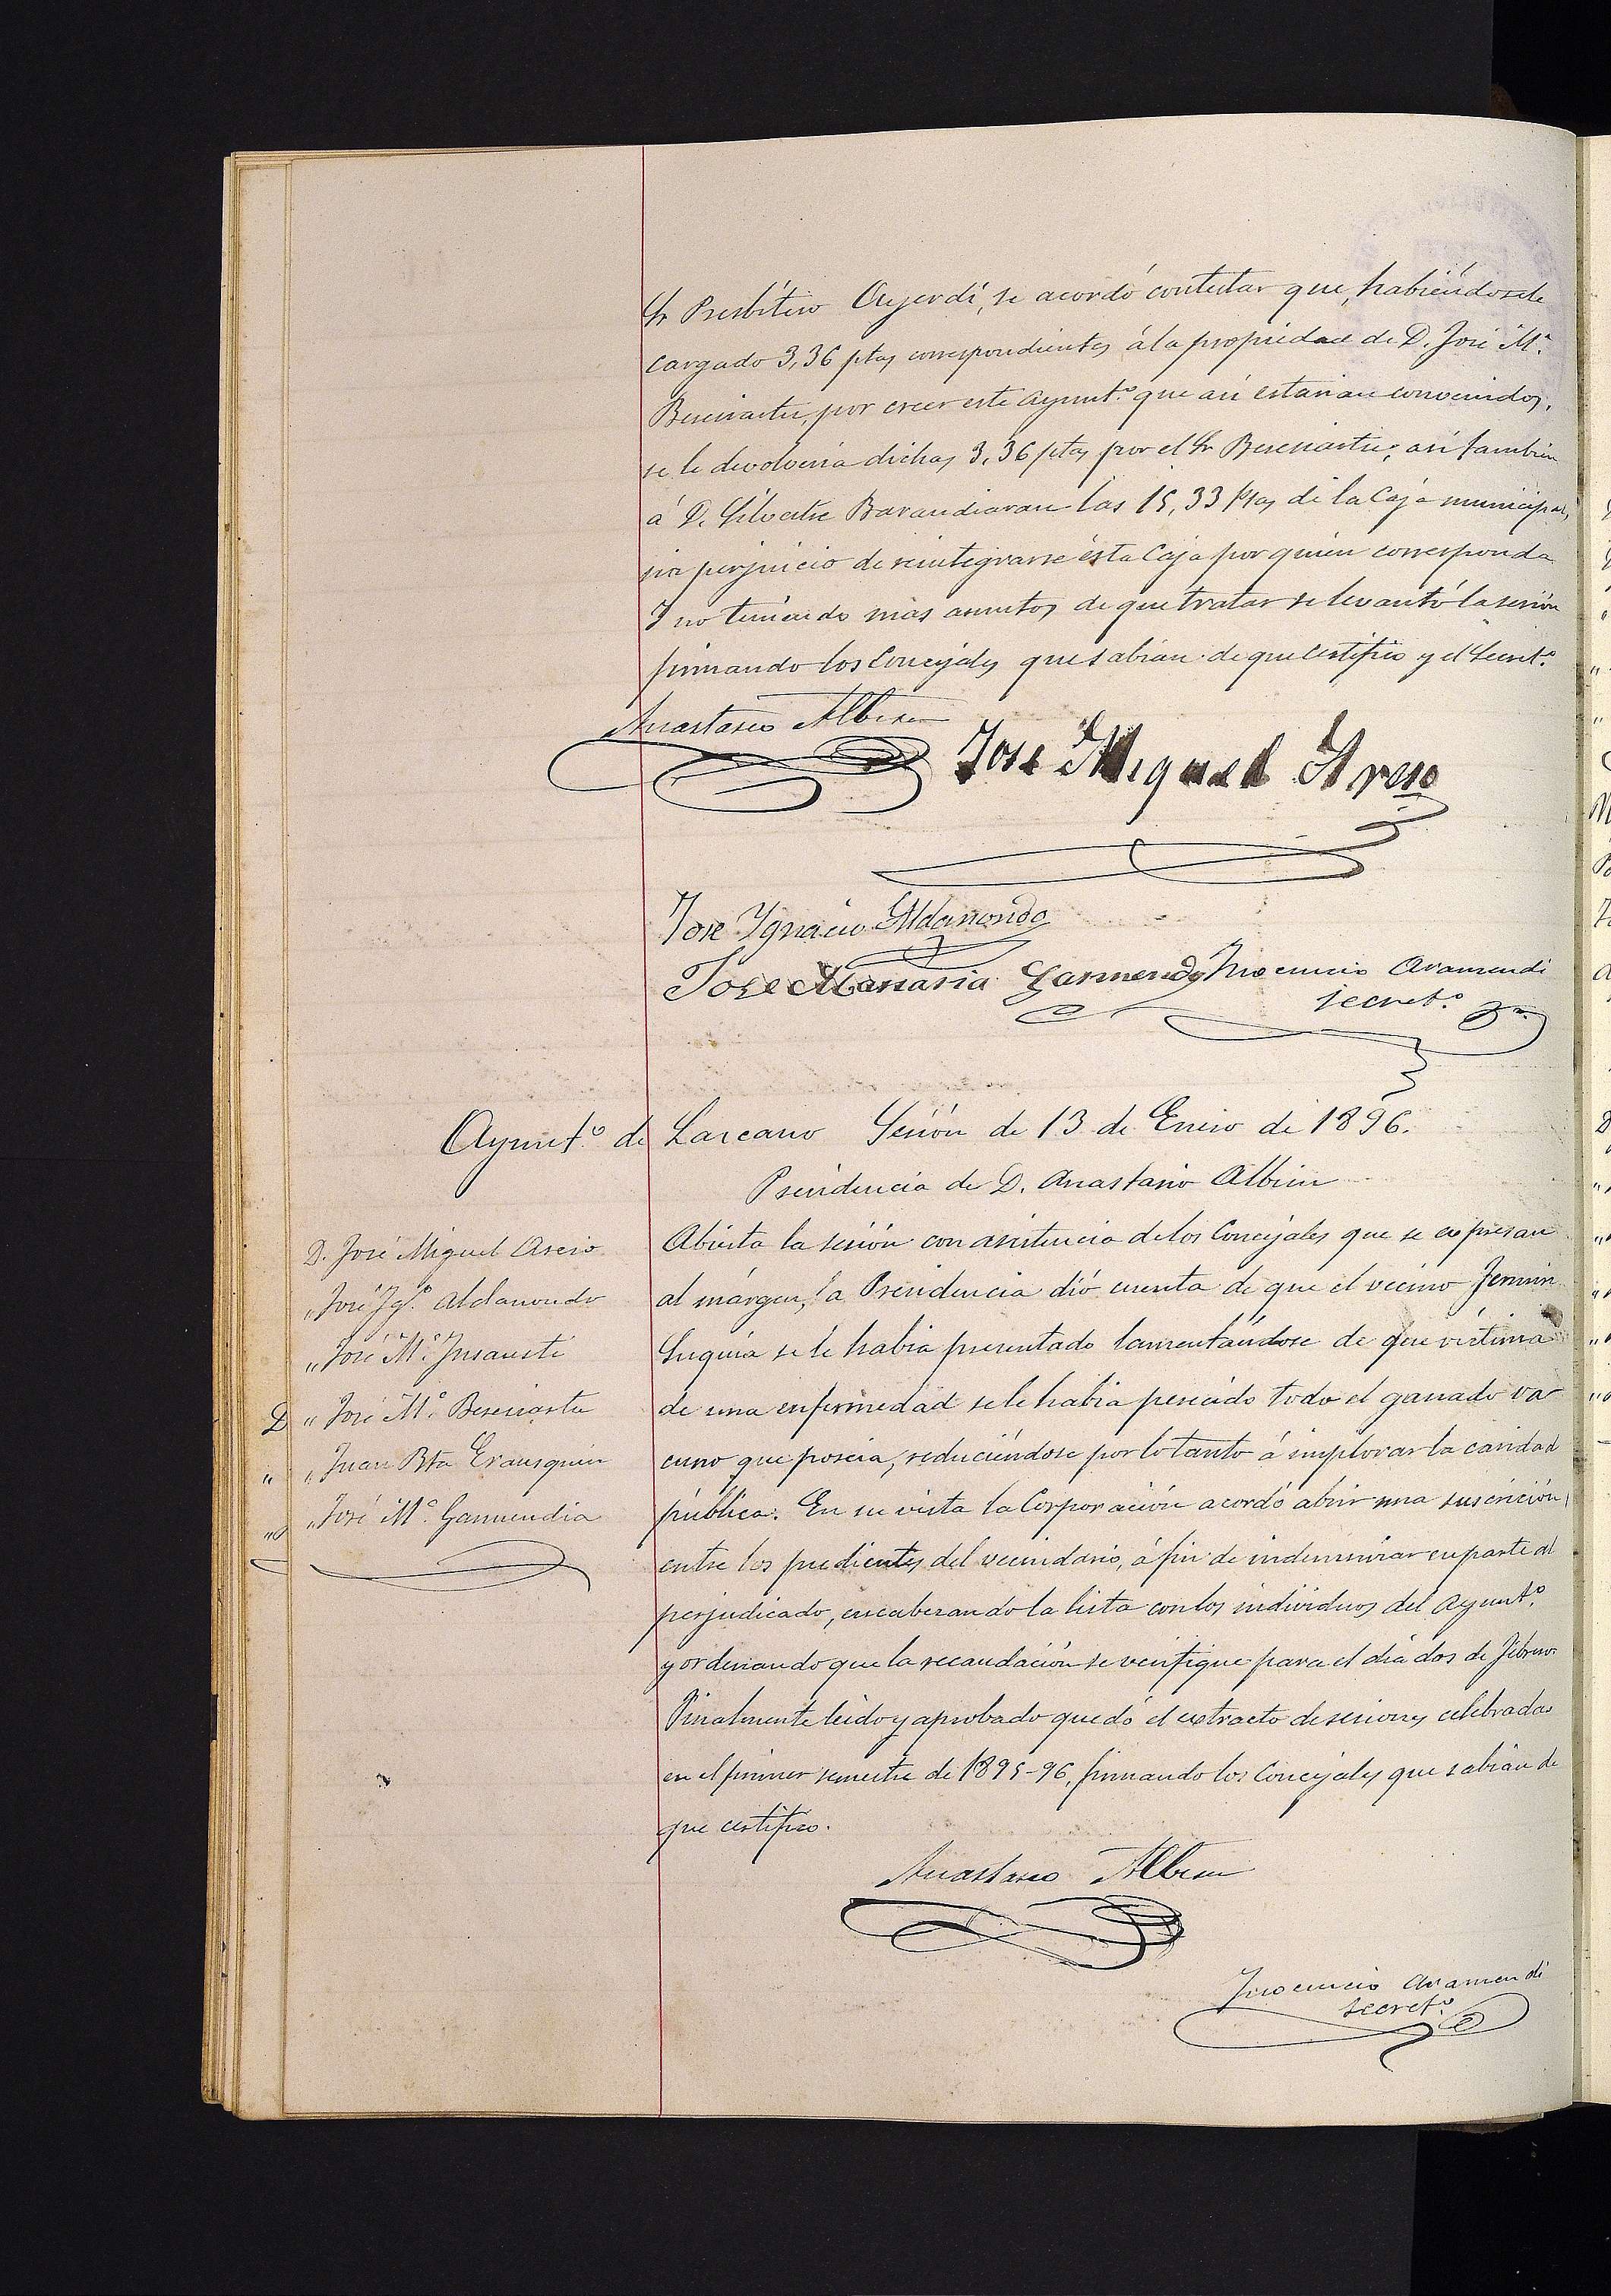 Sr Presbítero Oyerdi, se acordó contestar que, habiéndosele
cargado 3,36 ptas correspondientes á la propiedad de D. José Mª
Beseiartu, por creer este Ayuntº que asi estarian convenidos,
se le devolveria dichas 3,36 ptas por el Sr Beseiartu; asi tambien
á D. Silvestre Barandiaran las 15,33 ptas de la Caja municipal,
sin perjuicio de reintegrarse ésta Caja por quien corresponda
Y no teniendo mas asuntos de que tratar se levantó la sesión
firmando los Concejales que sabian de que certifico y el Secretº
Anastasio Albisu
Jose Miguel Areso
Jose Ygnacio Aldanondo
Jose Maria Garmendia Inocencio Aramendi
secretº
Ayuntº de Lazcano Sesión de 13 de Enero de 1896.
Presidencia de D. Anastasio Albisu
D. José Miguel Areso
" José Igº Aldanondo
" José Mª Insausti
D " José Mª Beseiartu
" " Juan Bta Erausquin
" " José Mª Garmendia
Abierta la sesión con asistencia de los Concejales que se expresan
al márgen, la Presidencia dió cuenta de que el vecino Fermin
Suquia se le habia presentado lamentándose de que víctima
de una enfermedad se le habia perecido todo el ganado va
cuno que poseia, reduciéndose por lo tanto á implorar la caridad
pública. En su vista la Corporación acordó abrir una suscrición
entre los pudientes del vecindario, á fin de indemnizar en parte al
perjudicado, encabezando la lista con los individuos del Ayuntº
y ordenando que la recaudación se verifique para el dia dos de Febrero.
Finalmente leido y aprobado quedó el extracto de sesiones celebradas
en el primer semestre de 1895-96, firmando los Concejales que sabian de
que certifico.
Anastasio Albisu
Inocencio Aramendi
secretº